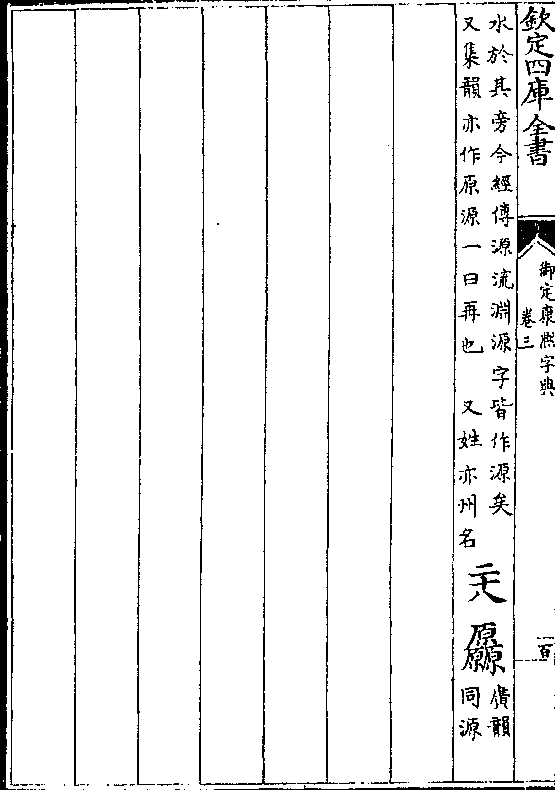 欽定四庫全書
御定康熙字典
卷三
百
水於其旁今經傳源流淵源字皆作源矣
又集韻亦作原源一曰再也　又姓亦州名
二十八
厵
廣韻
同源